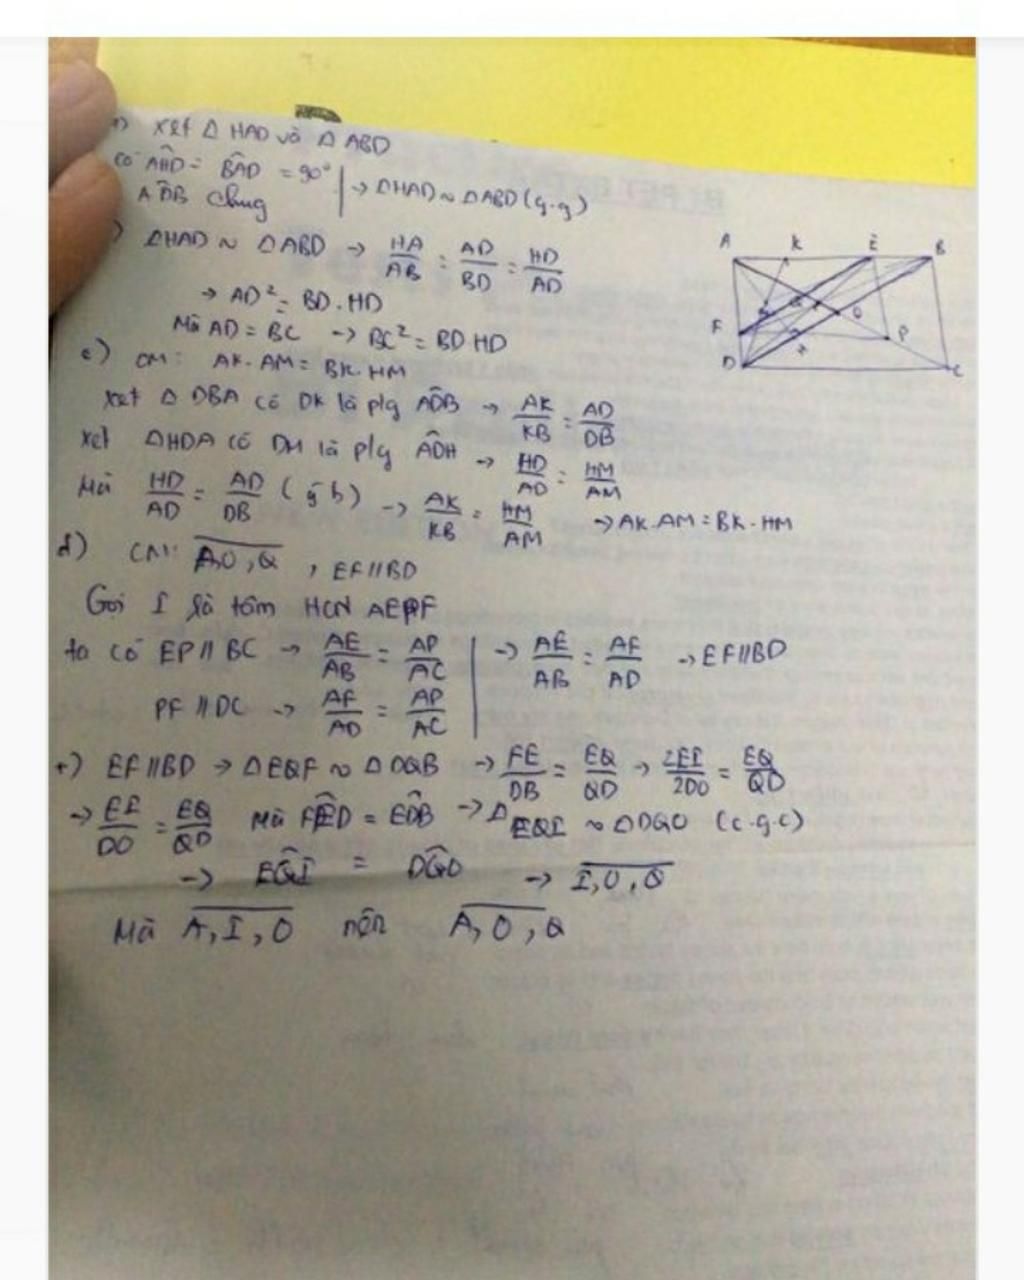 a) Xét Δ HAD và Δ ABD
có AĤD = BÂD = 90°
A D̂B chung
→ ΔHAD ~ ΔABD (g.g)
b) ΔHAD ~ ΔABD → HA/AB = AD/BD = HD/AD
→ AD² = BD.HD
Mà AD = BC → BC² = BD.HD
c) CM: AK.AM = BK.HM
Xét Δ DBA có DK là p/g AD̂B → AK/KB = AD/DB
Xét ΔHDA có DM là p/g AD̂H → HD/AD = HM/AM
Mà HD/AD = AD/DB (ý b) → AK/KB = HM/AM → AK.AM = BK.HM
d) CM: A,O,Q , EF//BD
Gọi I là tâm HCN AEPF
ta có EP // BC → AE/AB = AP/AC
PF // DC → AF/AD = AP/AC
→ AE/AB = AF/AD → EF//BD
+) EF//BD → ΔEQF ~ ΔDQB → FE/DB = EQ/QD → 2EI/2DO = EQ/QD
→ EI/DO = EQ/QD Mà FÊD = ED̂B → Δ EQI ~ ΔDQO (c.g.c)
→ EQ̂I = DQ̂O → I,O,Q
Mà A,I,O nên A,O,Q
A K E B
F Q O P
D H C